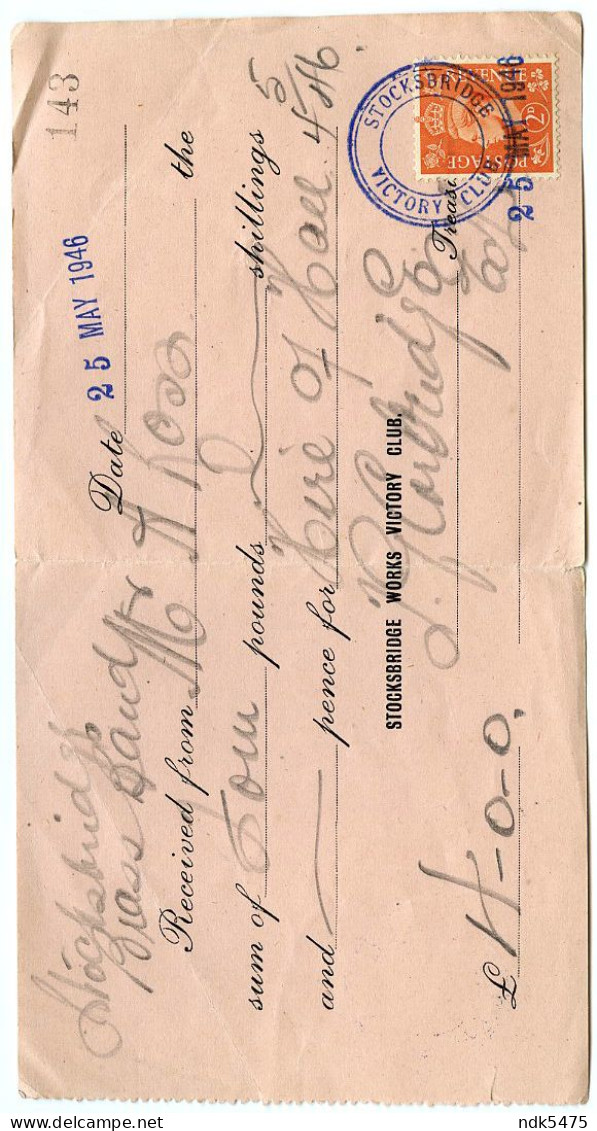 143
Stocksbridge
Brass Band
Date 25 MAY 1946
Received from Mr A Ross the
sum of Four pounds shillings
and pence for Hire of Hall 4/5/46
STOCKSBRIDGE WORKS VICTORY CLUB.
£ 4-0-0.
STOCKSBRIDGE
VICTORY CLUB
REVENUE
POSTAGE
2D
25 MAY 1946
delcampe.net
ndk5475